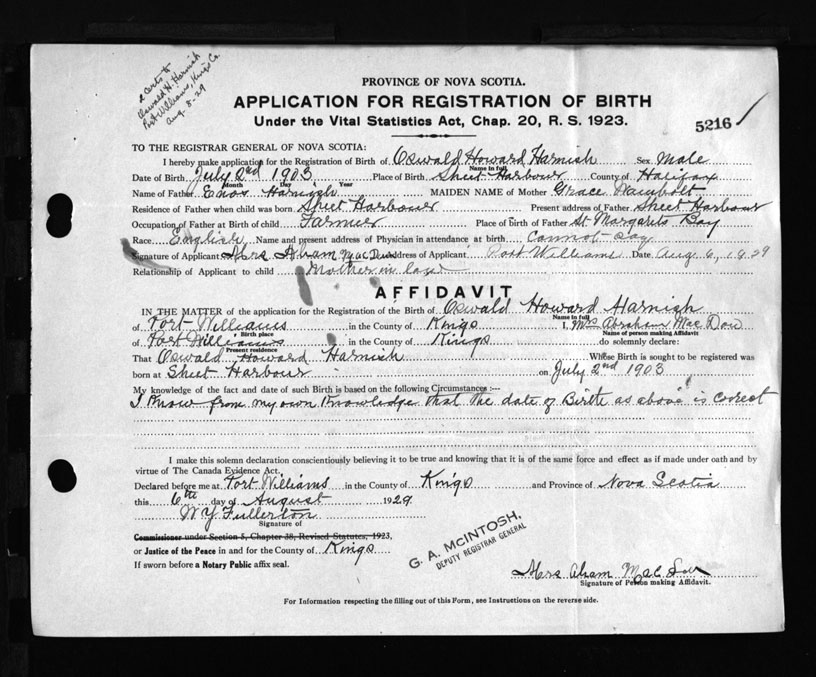 2 certs to
Oswald H. Harnish
Port Williams, Kings Co.
Aug. 8-29
PROVINCE OF NOVA SCOTIA.
APPLICATION FOR REGISTRATION OF BIRTH
Under the Vital Statistics Act, Chap. 20, R. S. 1923.
5216
TO THE REGISTRAR GENERAL OF NOVA SCOTIA:
I hereby make application for the Registration of Birth of Oswald Howard Harnish Sex Male
Name in full
Date of Birth July 2nd 1903 Place of Birth Sheet Harbour County of Halifax
Month Day Year
Name of Father Enos Harnish MAIDEN NAME of Mother Grace
Residence of Father when child was born Sheet Harbour Present address of Father Sheet Harbour
Occupation of Father at Birth of Child Farmer Place of birth of Father St. Margarets Bay
Race English Name and present address of Physician in attendance at birth Cannot say
Signature of Applicant Mrs Abram Mac Address of Applicant Port Williams Date Aug 6, 1929
Relationship of Applicant to child Mother in law
AFFIDAVIT
IN THE MATTER of the application for the Registration of the Birth of Oswald Howard Harnish
Name in full
of Port Williams in the County of Kings I, Mrs Abraham Mac Dow
Birth place Name of person making Affidavit
of Port Williams in the County of Kings do solemnly declare:
Present residence
That Oswald Howard Harnish Whose Birth is sought to be registered was
born at Sheet Harbour on July 2nd 1903
My knowledge of the fact and date of such Birth is based on the following Circumstances :—
I Know from my own Knowledge that the date of Birth as above is correct
I make this solemn declaration conscientiously believing it to be true and knowing that it is of the same force and effect as if made under oath and by
virtue of The Canada Evidence Act.
Declared before me at Port Williams in the County of Kings and Province of Nova Scotia
this 6th day of August 1929
W Y Fullerton
Signature of
Commissioner under Section 5, Chapter 38, Revised Statutes, 1923,
or Justice of the Peace in and for the County of Kings
If sworn before a Notary Public affix seal.
G. A. McINTOSH,
DEPUTY REGISTRAR GENERAL
Mrs Abram Mac Dow
Signature of Person making Affidavit.
For Information respecting the filling out of this Form, see Instructions on the reverse side.